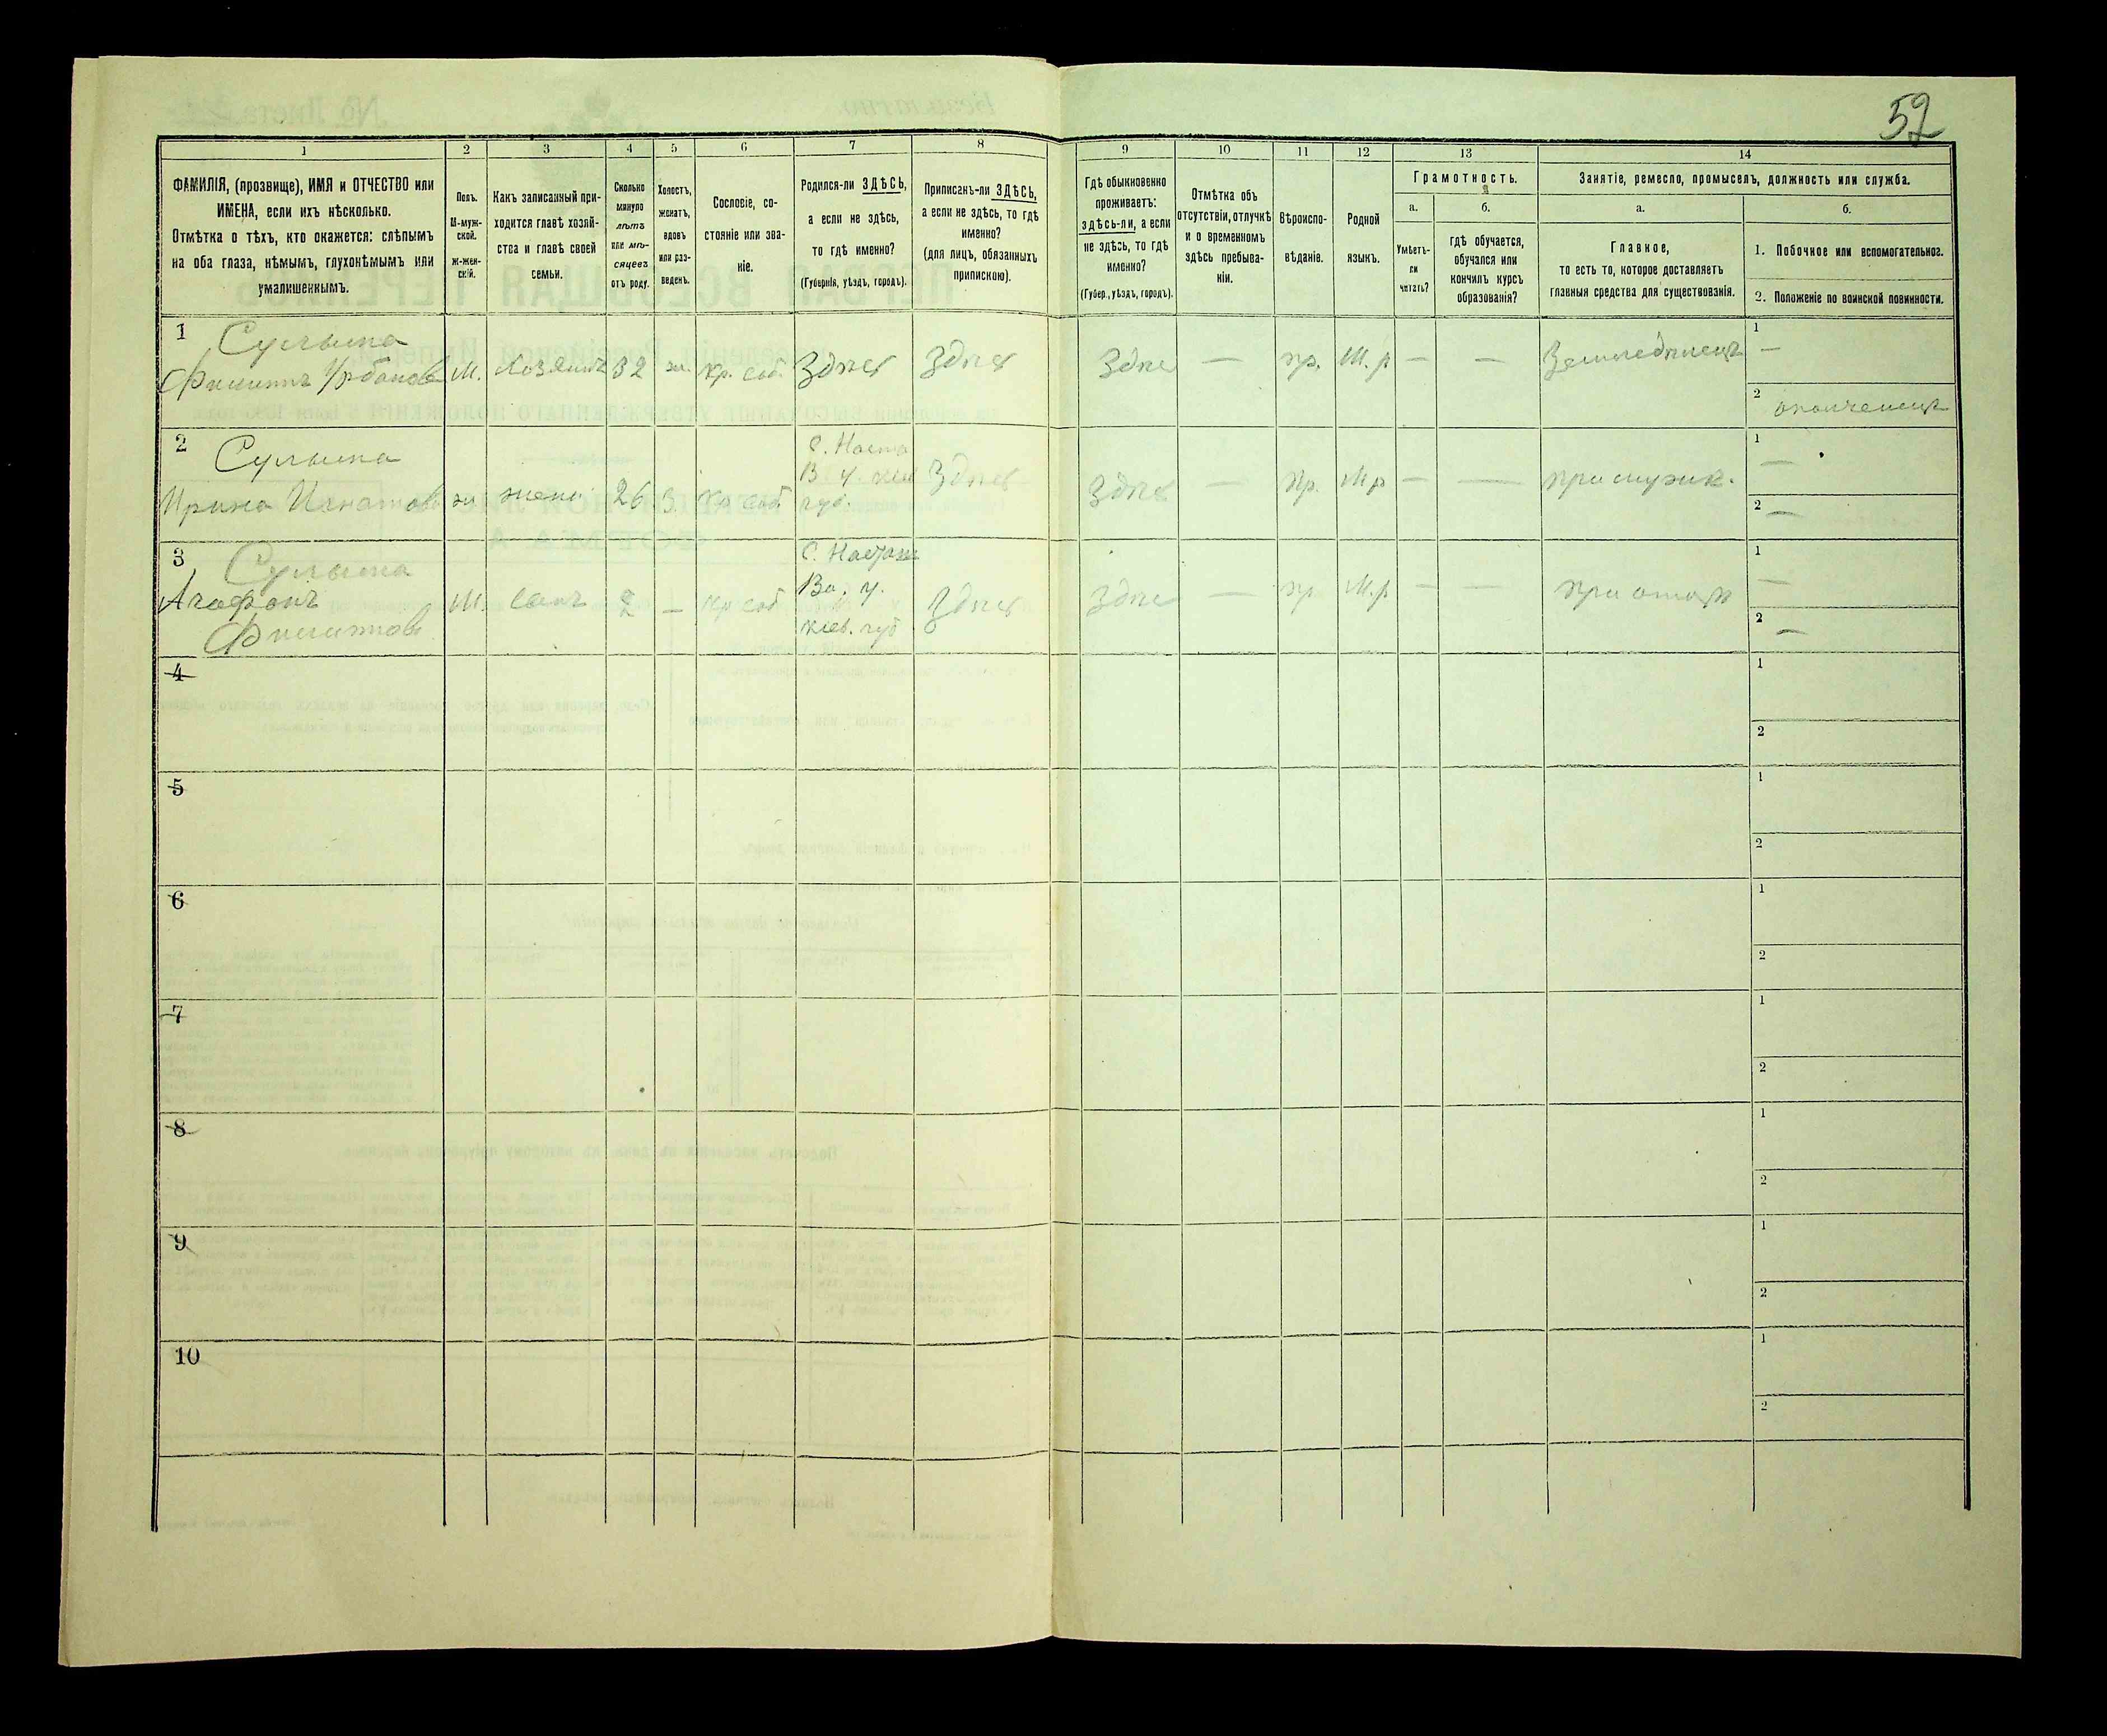 52
1 2 3 4 5 6 7 8 9 10 11 12 13 14
ФАМИЛІЯ, (прозвище), ИМЯ и ОТЧЕСТВО или
ИМЕНА, если ихъ нѣсколько.
Отмѣтка о тѣхъ, кто окажется: слѣпымъ
на оба глаза, нѣмымъ, глухонѣмымъ или
умалишеннымъ.
Полъ.
М-муж-
ской.
Ж-жен-
скій.
Какъ записанный при-
ходится главѣ хозяй-
ства и главѣ своей
семьи.
Сколько
минуло
лѣтъ
или мѣ-
сяцевъ
отъ роду.
Холостъ,
женатъ,
вдовъ
или раз-
веденъ.
Сословіе, со-
стояніе или зва-
ніе.
Родился-ли ЗДѢСЬ,
а если не здѣсь,
то гдѣ именно?
(Губернія, уѣздъ, городъ).
Приписанъ-ли ЗДѢСЬ,
а если не здѣсь, то гдѣ
именно?
(для лицъ, обязанныхъ
припискою).
Гдѣ обыкновенно
проживаетъ:
здѣсь-ли, а если
не здѣсь, то гдѣ
именно?
(Губер., уѣздъ, городъ).
Отмѣтка объ
отсутствіи, отлучкѣ
и о временномъ
здѣсь пребыва-
ніи.
Вѣроиспо-
вѣданіе.
Родной
языкъ.
Грамотность.
а.
Умѣетъ-
ли
читать?
б.
гдѣ обучается,
обучался или
кончилъ курсъ
образованія?
Занятіе, ремесло, промыселъ, должность или служба.
а.
Главное,
то есть то, которое доставляетъ
главныя средства для существованія.
б.
1. Побочное или вспомогательное.
2. Положеніе по воинской повинности.
1 Сулыма
Филиппъ Урбанов М. Хозяинъ 32 ж. Кр. соб. Здѣсь Здѣсь Здѣсь — пр. М.р — — Земледѣлецъ 1 —
2 ополченецъ
2 Сулыма
Ирина Игнатова ж жена 26 З. Кр соб
В. у. кіев
губ.
Здѣсь Здѣсь — Пр. М р — — при мужѣ. 1 —
2 —
3 Сулыма
Агафонъ
Филиппов
М. Сынъ 2 — кр соб
С. Насташк
Ва. у.
кіев. губ
Здѣсь Здѣсь — пр М.р — — при отцѣ 1 —
2 —
4 1
2
5 1
2
6 1
2
7 1
2
8 1
2
9 1
2
10 1
2